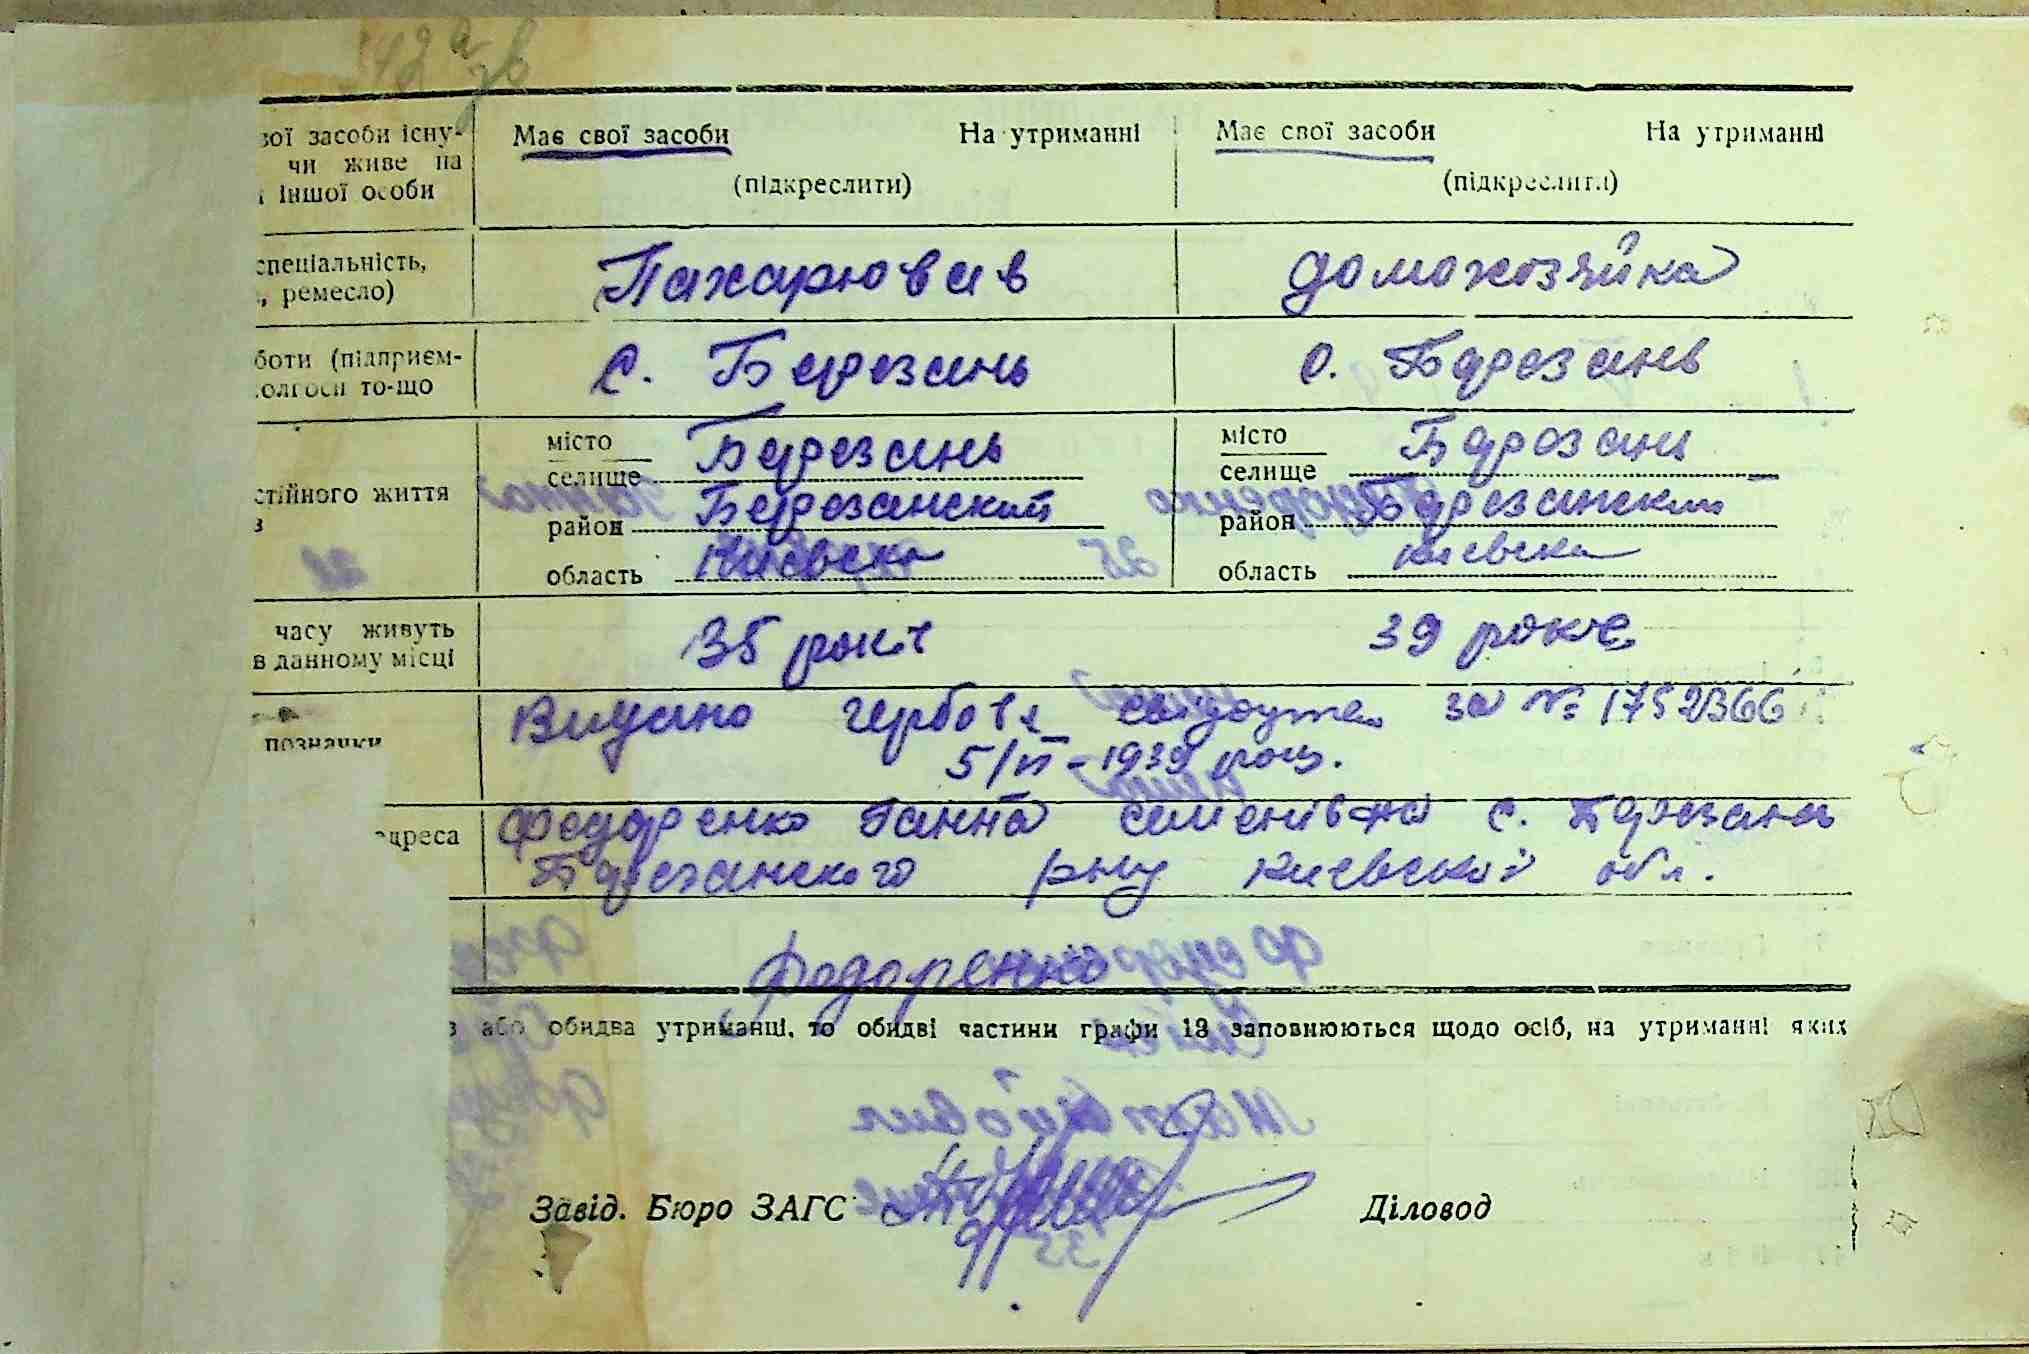 вої засоби існу- Має свої засоби На утриманні Має свої засоби На утриманні
чи живе на
іншої особи (підкреслити) (підкреслити)
спеціальність, Пажарював домохозяйка
, ремесло)
боти (підприєм- с. Березань с. Березань
колгосп то-що
місто Березань місто Березань
селище селище
стійного життя район Березанский район Березанский
область Києвска область Києвска
часу живуть 35 років 39 років
в данному місці
Видано гербове за № 1752366
позначки 5/VI-1939 році.
адреса Федоренко Ганна Семенівна с. Березань
Березанского р-ну Киевской обл.
Федоренко
або обидва утриманці, то обидві частини графи 13 заповнюються щодо осіб, на утриманні яких
Завід. Бюро ЗАГС Діловод